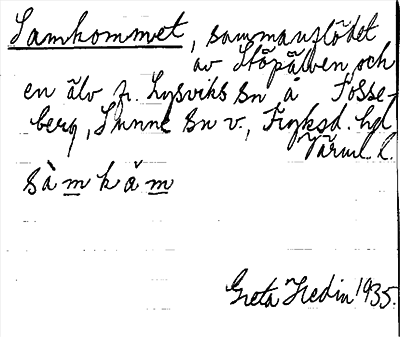 Samkommet, sammanflödet
av Stöpälven och
en älv fr. Lysviks sn å Fosse-
berg, Sunne sn v., Fryksd. hd
Värml. l.
sàmkåm
Greta Hedin 1935.